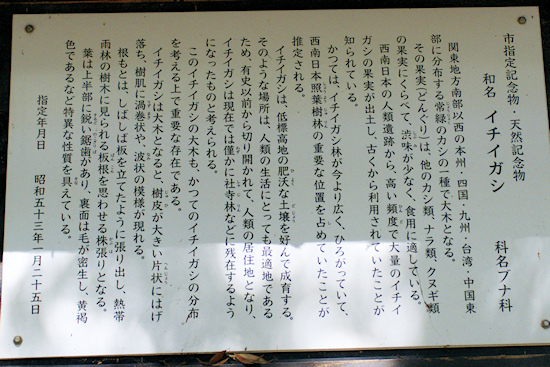 市指定記念物・天然記念物
和名 イチイガシ 科名ブナ科
関東地方南部以西の本州・四国・九州・台湾・中国東
部に分布する常緑のカシの一種で大木となる。
その果実(どんぐり)は、他のカシ類、ナラ類、クヌギ類
の果実にくらべて、渋味が少なく、食用に適している。
西南日本の人類遺跡から、高い頻度で大量のイチイ
ガシの果実が出土し、古くから利用されていたことが
知られている。
かつては、イチイガシ林が今より広く、ひろがっていて、
西南日本照葉樹林の重要な位置を占めていたことが
推定される。
イチイガシは、低標高地の肥沃な土壌を好んで成育する。
そのような場所は、人類の生活にとっても最適地である
ため、有史以前から切り開かれて、人類の居住地となり、
イチイガシは現在では僅かに社寺林などに残在するよう
になったものと考えられる。
このイチイガシの大木も、かつてのイチイガシの分布
を考える上で重要な存在である。
イチイガシは大木となると、樹皮が大きい片状にはげ
落ち、樹肌に渦巻状や、波状の模様が現れる。
根もとは、しばしば板を立てたように張り出し、熱帯
雨林の樹木に見られる板根を思わせる株張りとなる。
葉は上半部に鋭い鋸歯があり、裏面は毛が密生し、黄褐
色であるなど特異な性質を具えている。
指定年月日 昭和五十三年一月二十五日